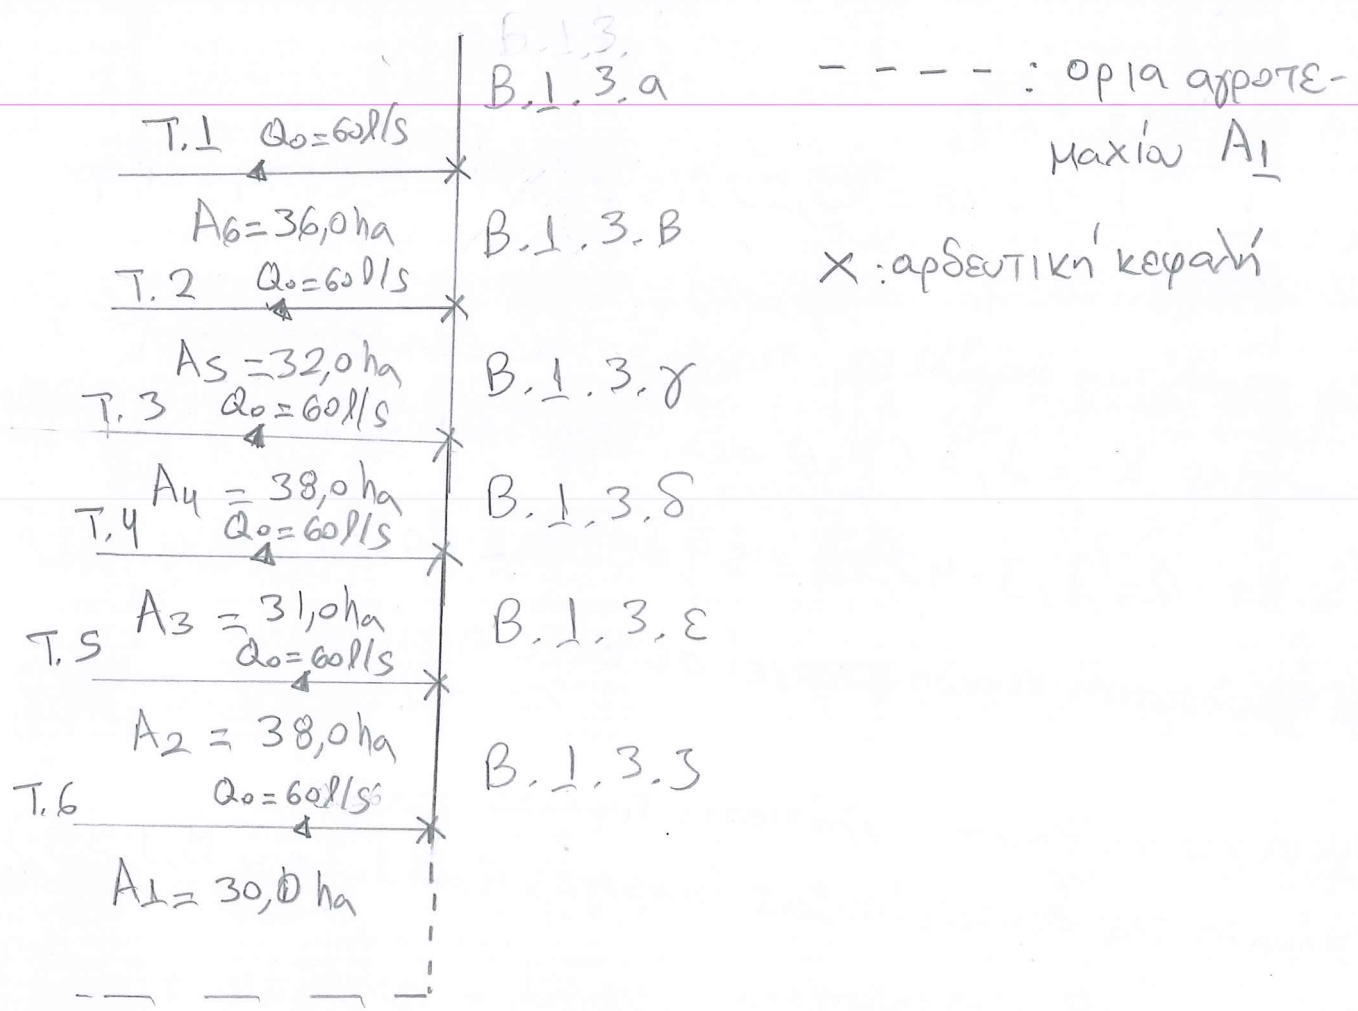 Β.1.3.
Β.1.3.α
- - - - : ορια αγροτε-
μαχίου Α1
Τ.1 Qo=60l/s
Α6=36,0ha
Β.1.3.Β
Χ:αρδευτική κεφαλή
Τ.2 Qo=60l/s
Α5=32,0ha
Β.1.3.γ
Τ.3 Qo=60l/s
Α4=38,0ha
Β.1.3.δ
Τ.4 Qo=60l/s
Α3=31,0ha
Β.1.3.ε
Τ.5 Qo=60l/s
Α2=38,0ha
Β.1.3.ζ
Τ.6 Qo=60l/s
Α1=30,0ha